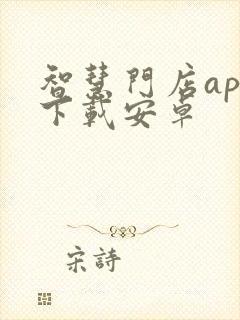 智慧門店ap
下載安卓
宋詩